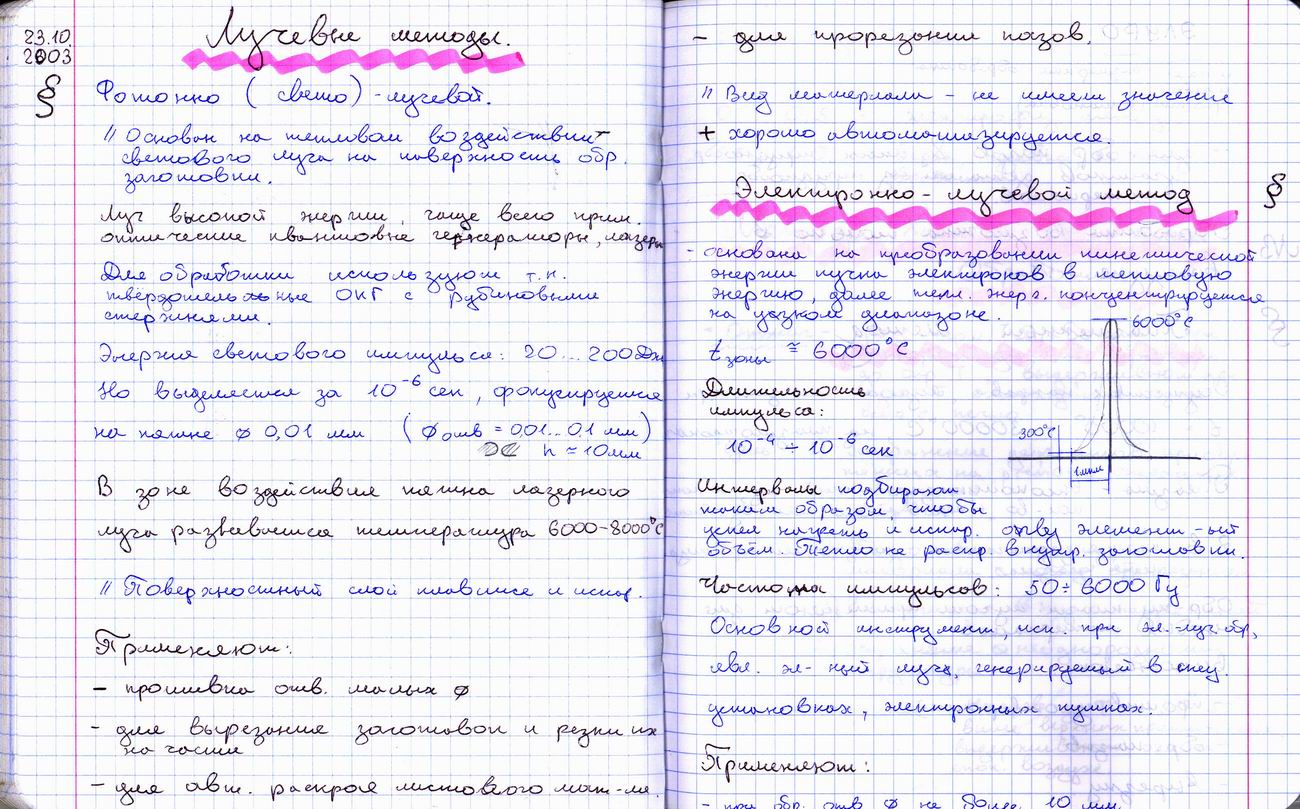 23.10.
2003
Лучевые методы.
§
Фотонно (свето)-лучевой.
// Основан на тепловом воздействии
светового луча на поверхность обр.
заготовки.
Луч высокой энергии, чаще всего прим.
оптические квантовые генераторы, лазеры
Для обработки используют т.н.
твёрдотельные ОКГ с рубиновыми
стержнями.
Энергия светового импульса: 20...200 Дж
Но выделяется за 10⁻⁶ сек, фокусируется
на пятне ø 0,01 мм (ø отв = 0,01...0,1 мм)
h ≈ 10мм
В зоне воздействия пятна лазерного
луча развивается температура 6000-8000°C
// Поверхностный слой плавится и испар.
Применяют:
- прошивка отв. малых ø
- для вырезание заготовок и резки их
на части
- для авт. раскроя листового мат-ла.
- для прорезании пазов.
// Вид материала - не имеет значение
+ хорошо автоматизируется.
Электронно-лучевой метод
§
- основана на преобразовании кинетической
энергии пучка электронов в тепловую
энергию, далее тепл. энерг. концентрируется
на узком диапазоне.
6000°C
t зоны ≈ 6000°C
Длительность
импульса:
10⁻⁴ ÷ 10⁻⁶ сек
300°C
1мкм
Интервалы подбирают
таким образом, чтобы
успел нагреть и испар. элемент-ый
объём. Тепло не распр. внутр. заготовки.
Частота импульсов: 50÷6000 Гц
Основной инструмент, исп. при эл.-луч. обр,
явл. эл-ный луч, генерируемый в спец.
установках, электронных пушках.
Применяют:
- при обр. отв ø не более 10 мм.